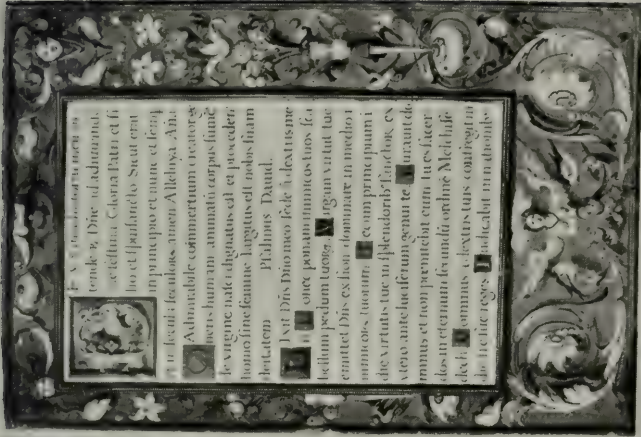 tende. Dñe ad adiuuand.
Gloria Patri et fi
lio et spiritui sancto Sicut erat
in principio et nunc et semp
in secula seculorū amen Alleluya Añ
Admirabile commertium creator ge
neris humani animatū corpus sumēs
de virgine nasci dignatus est et procedens
homo sine semine largitus est nobis suam
deitatem Psalmus Dauid.
Dixit Dñs Dño meo sede a dextris me
is Donec ponam inimicos tuos sca
bellum pedum tuorū. Virgam virtut tue
emittet Dñs ex sion dominare in medio i
nimicorū tuorum Tecum principium i
die virtutis tue in splendoribꝫ sanctorū ex
utero ante luciferum genui te Iurauit do
minus et non penitebit eum tu es sacer
dos in eternum secundū ordinē Melchise
dech Dominus a dextris tuis confregit in
die ire sue reges Iudicabit in nationibꝫ